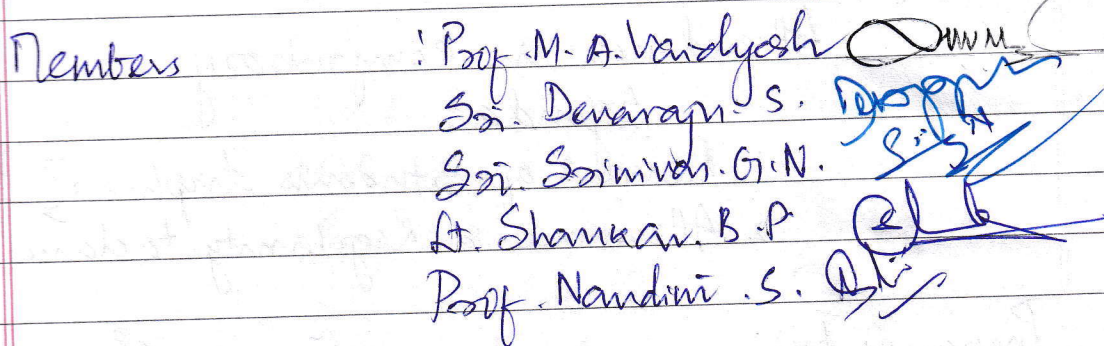 Members : Prof. M. A. Vaidyash
Sri. Devaraju. S.
Sri. Srinivas. G. N.
Lt. Shankar. B. P.
Prof. Nandini. S.